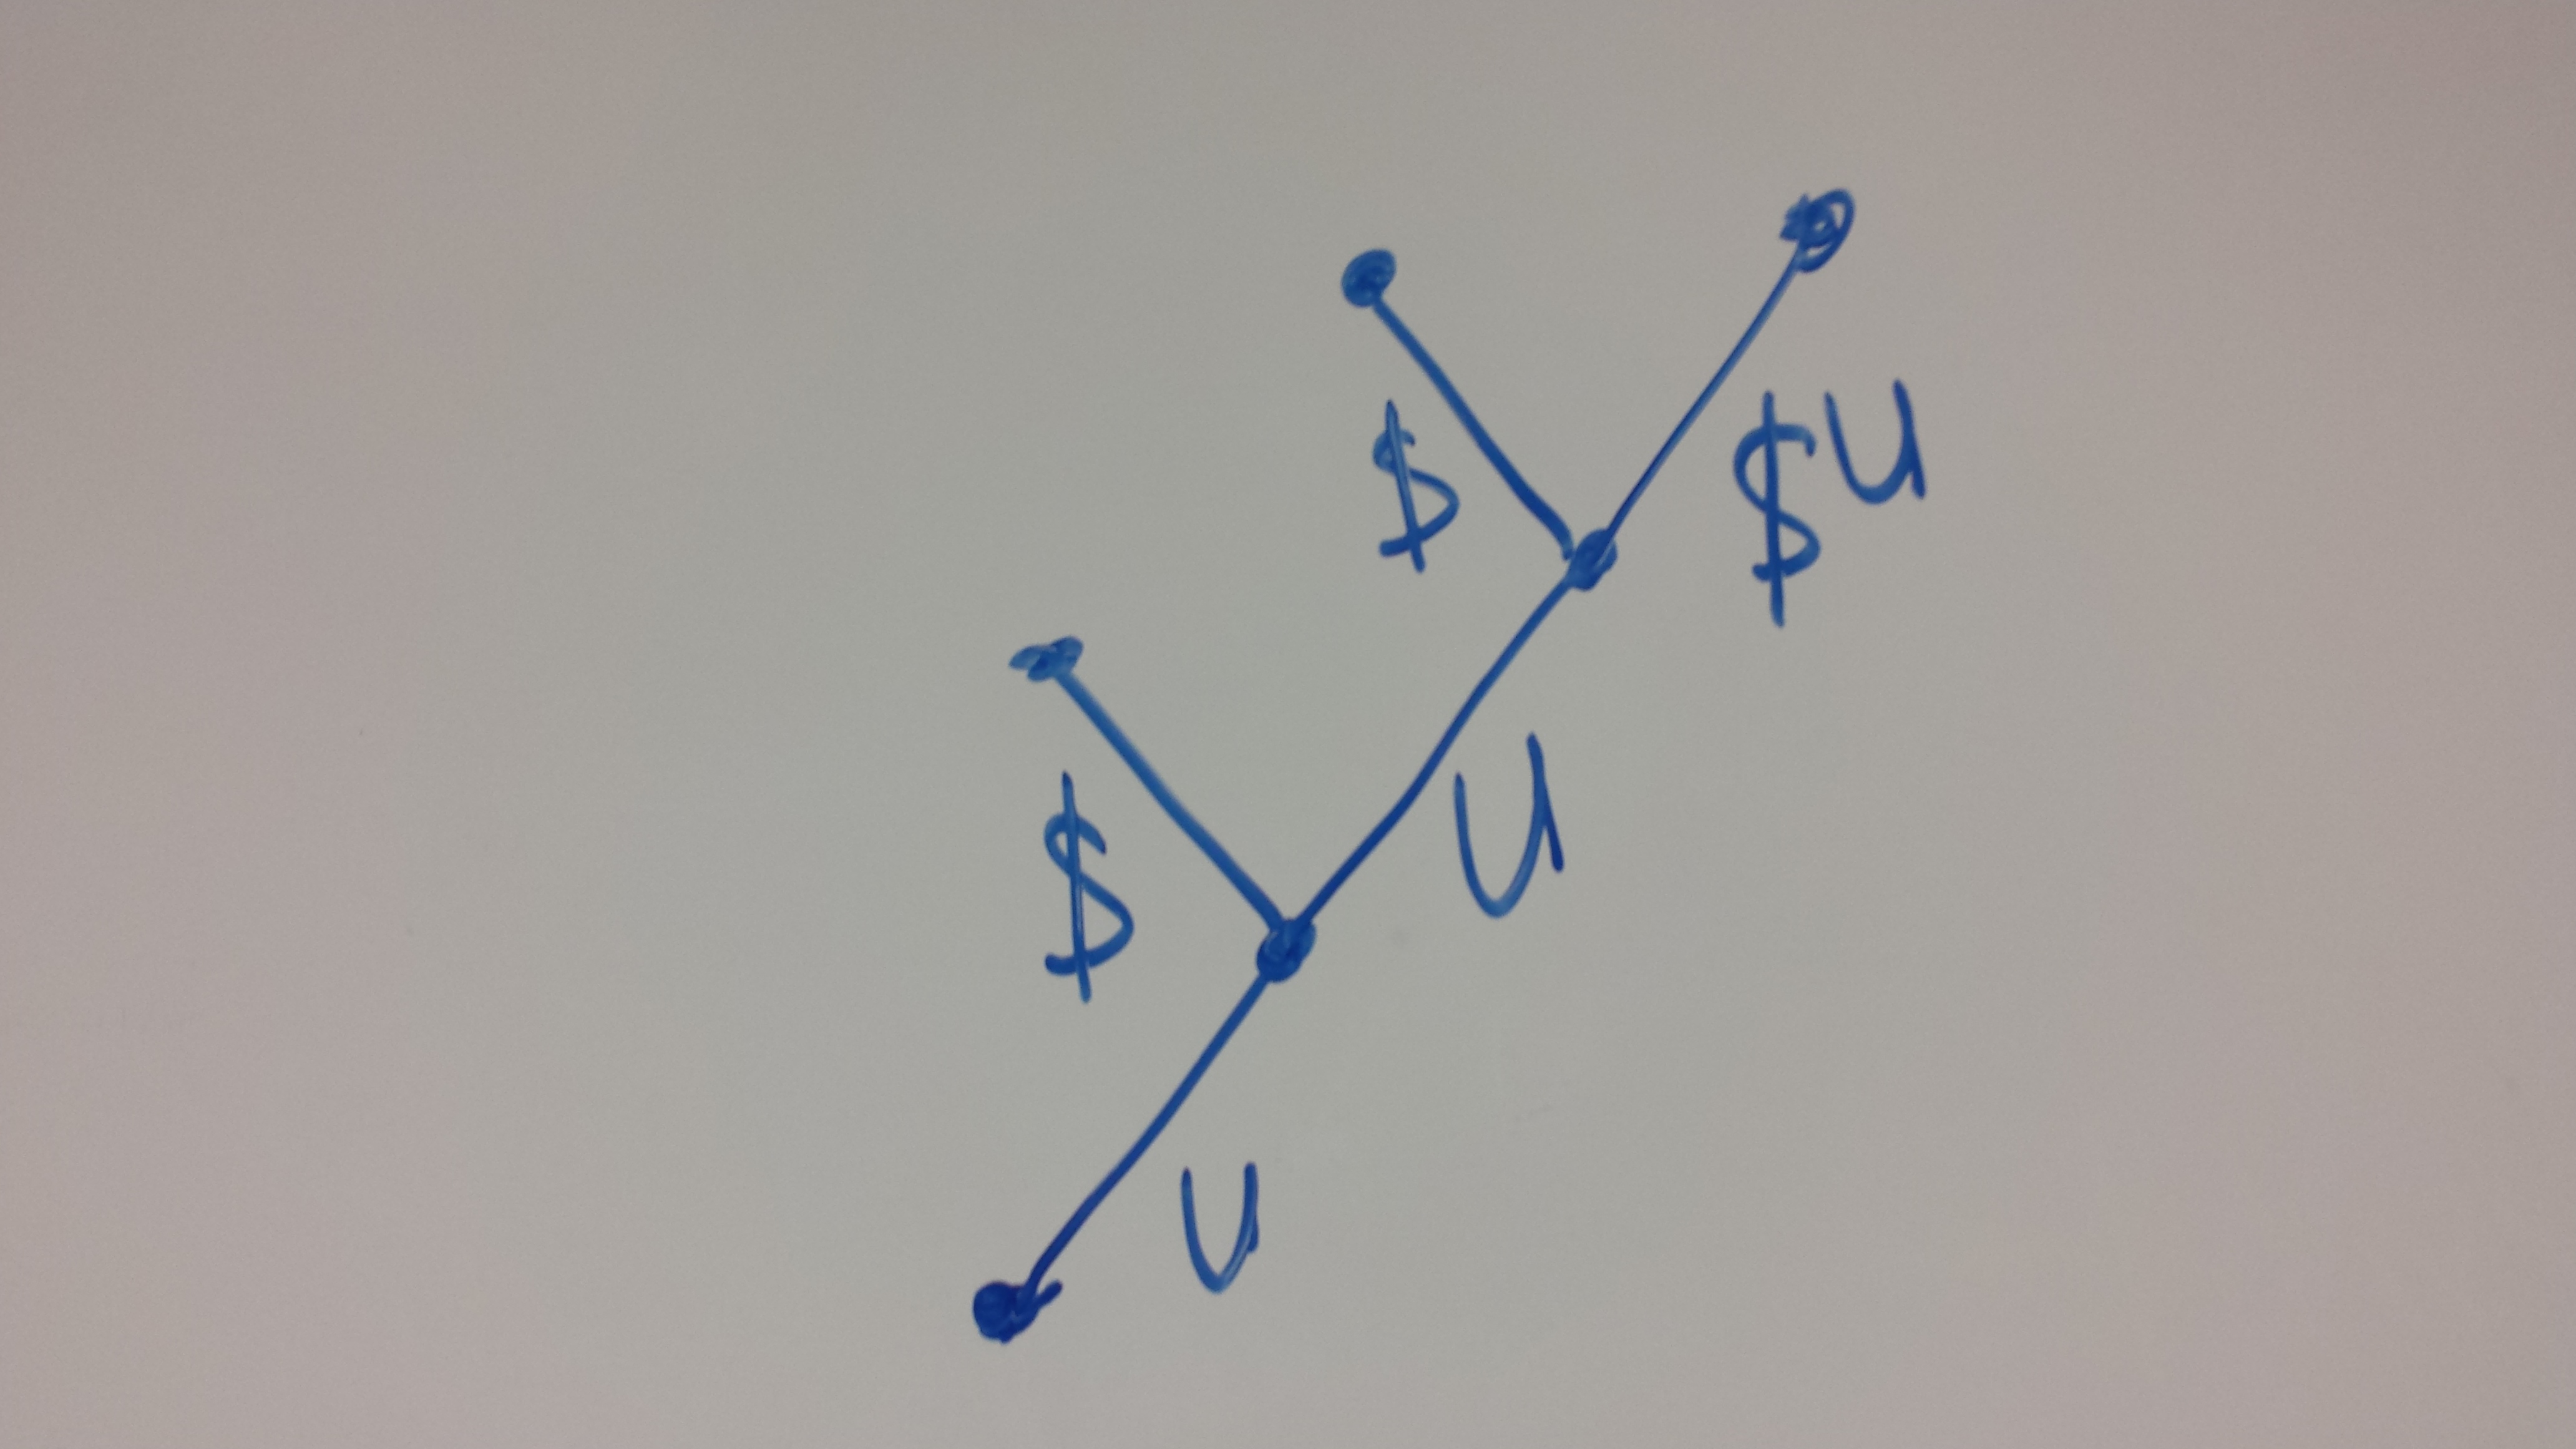 n
$
n
n$
$